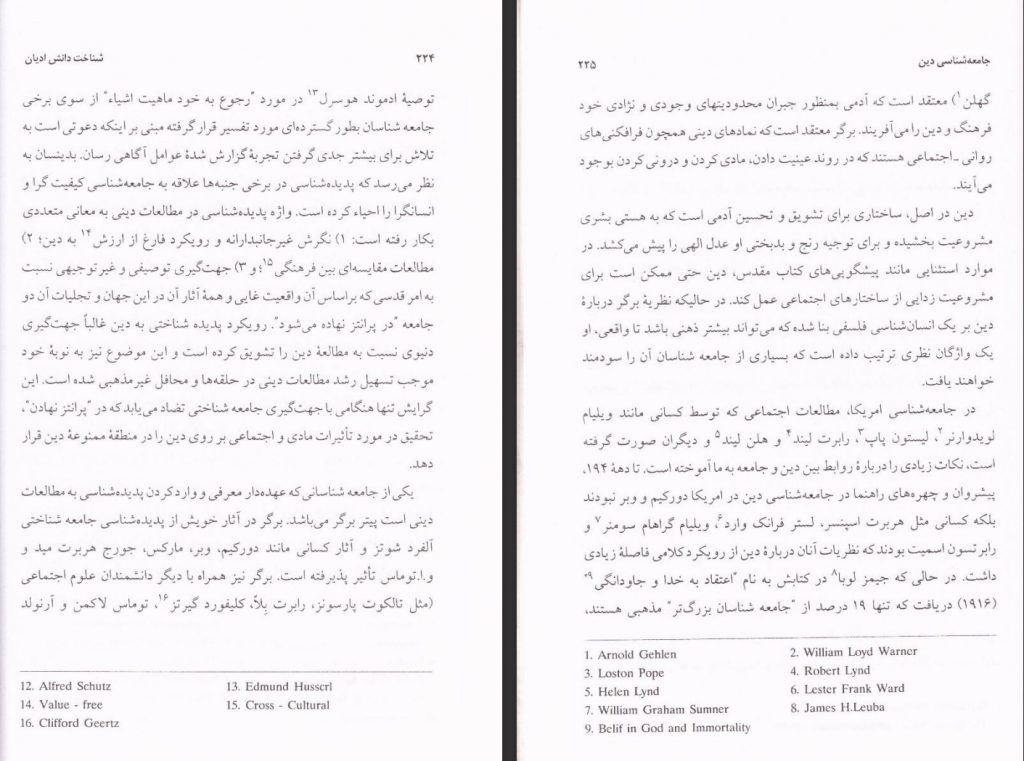 شناخت دانش ادیان
۲۲۴
توصیهٔ ادموند هوسرل۱۳ در مورد "رجوع به خود ماهیت اشیاء" از سوی برخی
جامعه شناسان بطور گسترده‌ای مورد تفسیر قرار گرفته مبنی بر اینکه دعوتی است به
تلاش برای بیشتر جدی گرفتن تجربهٔ گزارش شدهٔ عوامل آگاهی رسان. بدینسان به
نظر می‌رسد که پدیده‌شناسی در برخی جنبه‌ها علاقه به جامعه‌شناسی کیفیت گرا و
انسانگرا را احیاء کرده است. واژه پدیده‌شناسی در مطالعات دینی به معانی متعددی
بکار رفته است: ۱) نگرش غیرجانبدارانه و رویکرد فارغ از ارزش۱۴ به دین؛ ۲)
مطالعات مقایسه‌ای بین فرهنگی۱۵؛ و ۳) جهت‌گیری توصیفی و غیرتوجیهی نسبت
به امر قدسی که براساس آن واقعیت غایی و همهٔ آثار آن در این جهان و تجلیات آن دو
جامعه "در پرانتز نهاده می‌شود". رویکرد پدیده شناختی به دین غالباً جهت‌گیری
دنیوی نسبت به مطالعهٔ دین را تشویق کرده است و این موضوع نیز به نوبهٔ خود
موجب تسهیل رشد مطالعات دینی در حلقه‌ها و محافل غیرمذهبی شده است. این
گرایش تنها هنگامی با جهت‌گیری جامعه شناختی تضاد می‌یابد که در "پرانتز نهادن"،
تحقیق در مورد تأثیرات مادی و اجتماعی بر روی دین را در منطقهٔ ممنوعهٔ دین قرار
دهد.
یکی از جامعه شناسانی که عهده‌دار معرفی و وارد کردن پدیده‌شناسی به مطالعات
دینی است پیتر برگر می‌باشد. برگر در آثار خویش از پدیده‌شناسی جامعه شناختی
آلفرد شوتز و آثار کسانی مانند دورکیم، وبر، مارکس، جورج هربرت مید و
و.ا.توماس تأثیر پذیرفته است. برگر نیز همراه با دیگر دانشمندان علوم اجتماعی
(مثل تالکوت پارسونز، رابرت بِلاّ، کلیفورد گیرتز۱۶، توماس لاکمن و آرنولد
12. Alfred Schutz
13. Edmund Husscrl
14. Value - free
15. Cross - Cultural
16. Clifford Geertz
جامعه‌شناسی دین
۲۲۵
گهلن۱) معتقد است که آدمی بمنظور جبران محدودیتهای وجودی و نژادی خود
فرهنگ و دین را می‌آفریند. برگر معتقد است که نمادهای دینی همچون فرافکنی‌های
روانی ـ اجتماعی هستند که در روند عینیت دادن، مادی کردن و درونی کردن بوجود
می‌آیند.
دین در اصل، ساختاری برای تشویق و تحسین آدمی است که به هستی بشری
مشروعیت بخشیده و برای توجیه رنج و بدبختی او عدل الهی را پیش می‌کشد. در
موارد استثنایی مانند پیشگویی‌های کتاب مقدس، دین حتی ممکن است برای
مشروعیت زدایی از ساختارهای اجتماعی عمل کند. در حالیکه نظریهٔ برگر دربارهٔ
دین بر یک انسان‌شناسی فلسفی بنا شده که می‌تواند بیشتر ذهنی باشد تا واقعی، او
یک واژگان نظری ترتیب داده است که بسیاری از جامعه شناسان آن را سودمند
خواهند یافت.
در جامعه‌شناسی امریکا، مطالعات اجتماعی که توسط کسانی مانند ویلیام
لویدوارنر۲، لیستون پاپ۳، رابرت لیند۴ و هلن لیند۵ و دیگران صورت گرفته
است، نکات زیادی را دربارهٔ روابط بین دین و جامعه به ما آموخته است. تا دههٔ ۱۹۴،
پیشروان و چهره‌های راهنما در جامعه‌شناسی دین در امریکا دورکیم و وبر نبودند
بلکه کسانی مثل هربرت اسپنسر، لستر فرانک وارد۶، ویلیام گراهام سومنر۷ و
رابرتسون اسمیت بودند که نظریات آنان دربارهٔ دین از رویکرد کلامی فاصلهٔ زیادی
داشت. در حالی که جیمز لوبا۸ در کتابش به نام "اعتقاد به خدا و جاودانگی۹"
(۱۹۱۶) دریافت که تنها ۱۹ درصد از "جامعه شناسان بزرگ‌تر" مذهبی هستند،
1. Arnold Gehlen
2. William Loyd Warner
3. Loston Pope
4. Robert Lynd
5. Helen Lynd
6. Lester Frank Ward
7. William Graham Sumner
8. James H.Leuba
9. Belif in God and Immortality